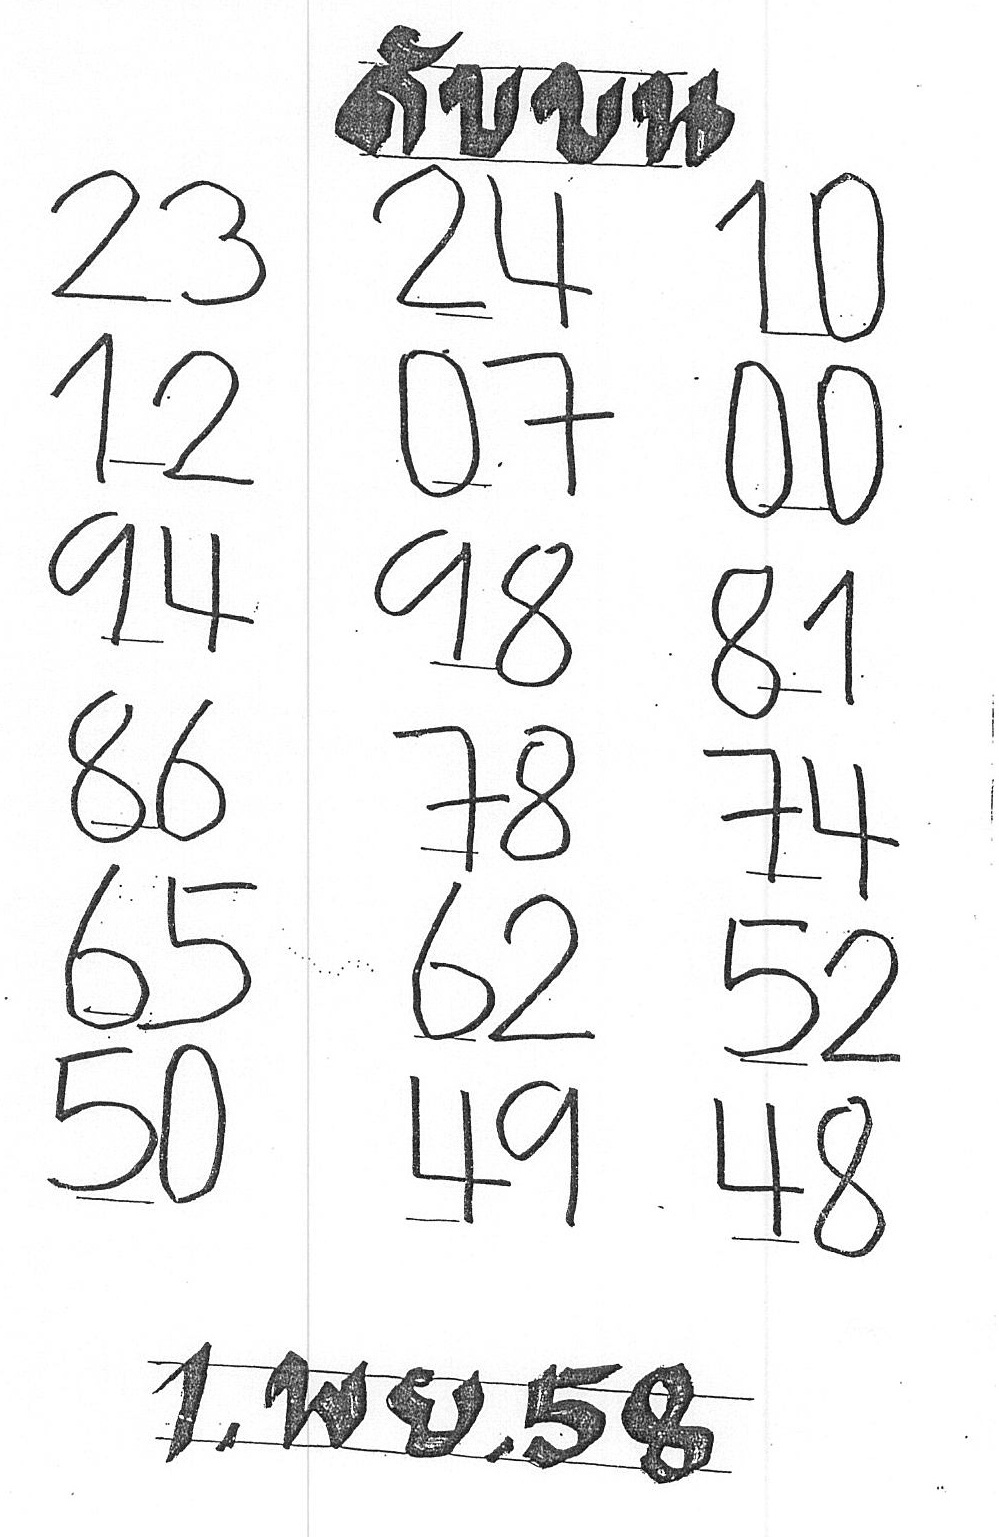 ดับบน
23 24 10
12 07 00
94 98 81
86 78 74
65 62 52
50 49 48
1.พย.58